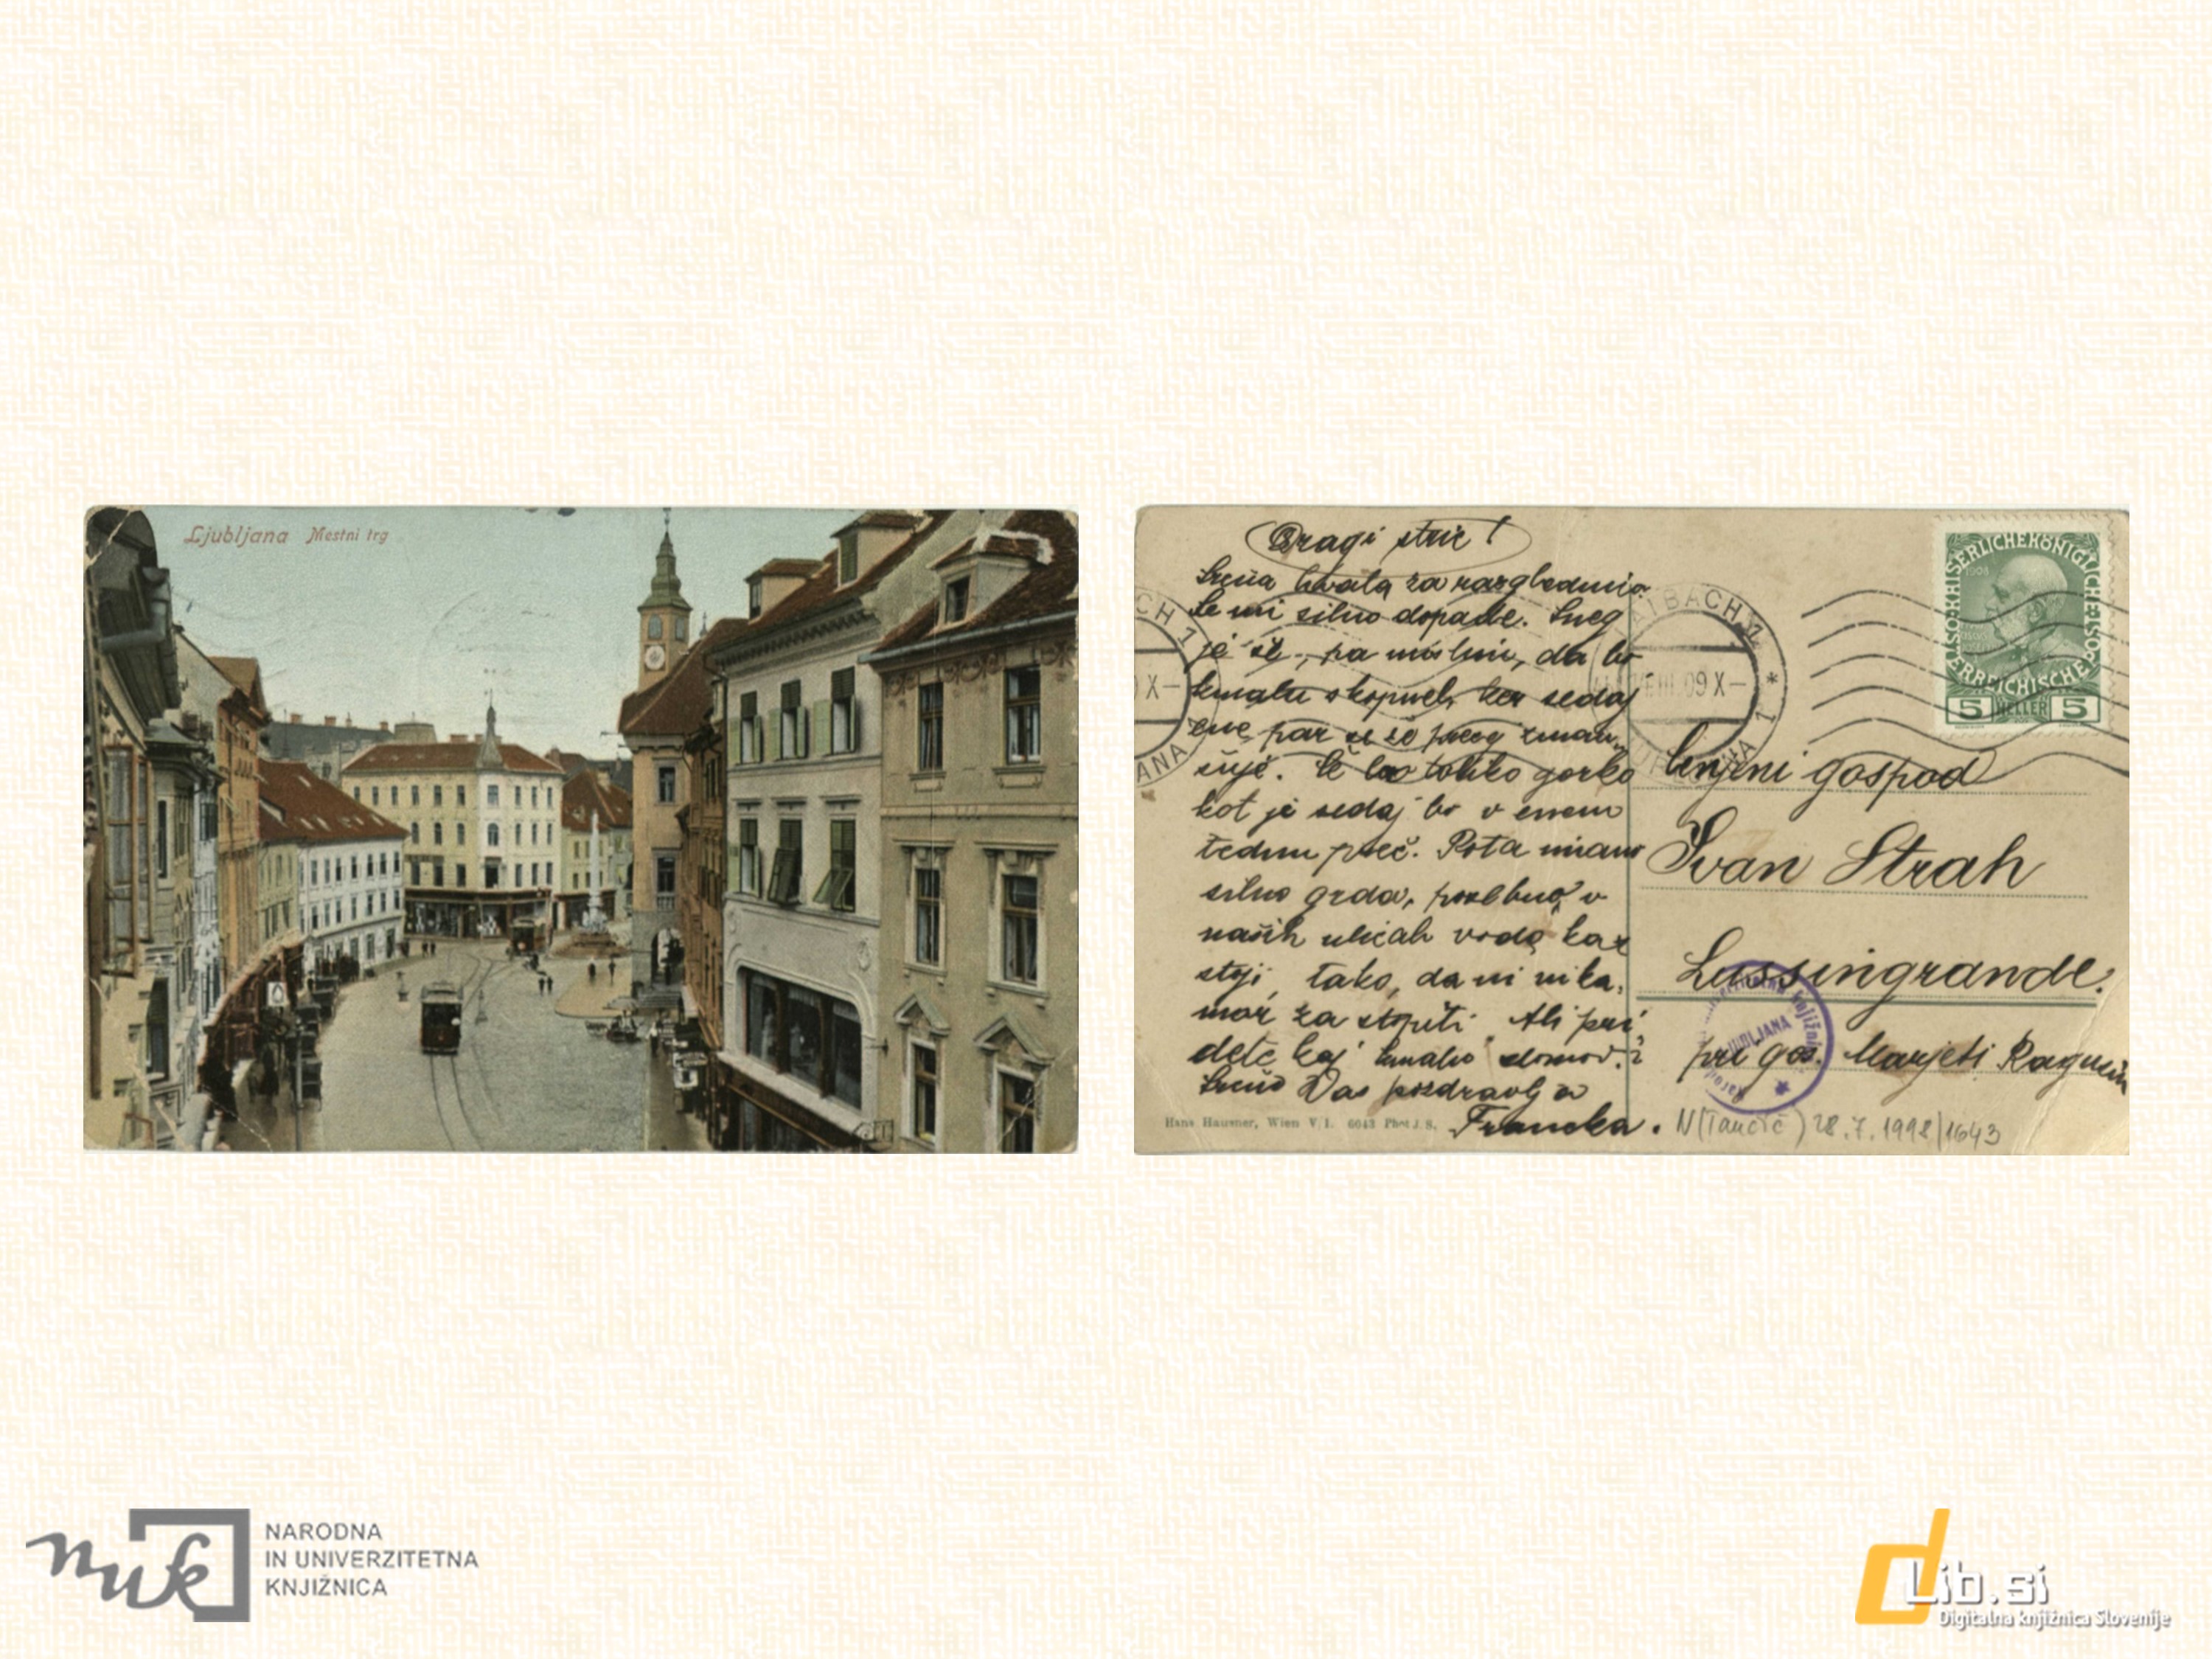 Ljubljana Mestni trg
Dragi stric!
Srčna hvala za razglednico.
Se mi silno dopade. Sneg
je še, pa mislim, da bo
kmalu skopnel, ker sedaj
ene par se še precej zmanj-
šuje. Če bo toliko gorko
kot je sedaj bo v enem
tednu preč. Pota imamo
silno grda, posebno v
naših ulicah voda kar
stoji, tako, da ni nika-
mor za stopiti. Ali pri-
dete kaj kmalo domov?
Srčno Vas pozdravlja
Francka.
Hans Hausner, Wien V/1. 6043 Phot J. S.
LAIBACH 1
VIII 09 X
KAISERLICHE KÖNIGLICHE ÖSTERREICHISCHE
1908
5 HELLER 5
gospod
Ivan Strah
Lussingrande.
pri gos. Marjeti
LJUBLJANA
N (Tančič) 28.7.1998/1643
nuk
NARODNA
IN UNIVERZITETNA
KNJIŽNICA
dLib.si
Digitalna knjižnica Slovenije